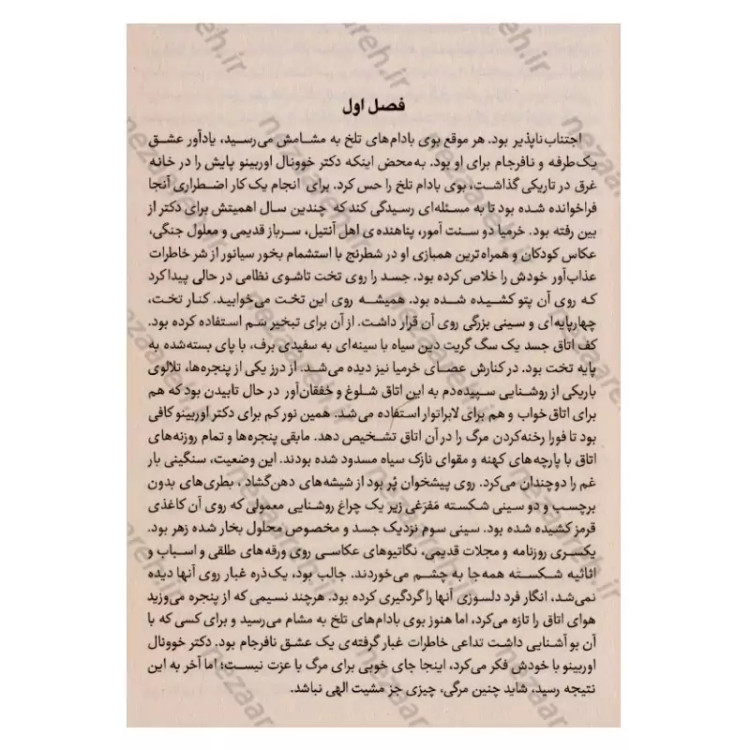 فصل اول
اجتناب‌ناپذیر بود. هر موقع بوی بادام‌های تلخ به مشامش می‌رسید، یادآور عشق
یک‌طرفه و نافرجام برای او بود. به‌محض اینکه دکتر خوونال اوربینو پایش را در خانه
غرق در تاریکی گذاشت، بوی بادام تلخ را حس کرد. برای انجام یک کار اضطراری آنجا
فراخوانده شده بود تا به مسئله‌ای رسیدگی کند که چندین سال اهمیتش برای دکتر از
بین رفته بود. خرمیا دو سنت آمور، پناهنده‌ی اهل آنتیل، سرباز قدیمی و معلول جنگی،
عکاس کودکان و همراه‌ترین همبازی او در شطرنج با استشمام بخور سیانور از شر خاطرات
عذاب‌آور خودش را خلاص کرده بود. جسد را روی تخت تاشوی نظامی در حالی پیدا کرد
که روی آن پتو کشیده شده بود. همیشه روی این تخت می‌خوابید. کنار تخت،
چهارپایه‌ای و سینی بزرگی روی آن قرار داشت. از آن برای تبخیر سَم استفاده کرده بود.
کف اتاق جسد یک سگ گریت دین سیاه با سینه‌ای به سفیدی برف، با پای بسته‌شده به
پایه تخت بود. در کنارش عصای خرمیا نیز دیده می‌شد. از درز یکی از پنجره‌ها، تلالوی
باریکی از روشنایی سپیده‌دم به این اتاق شلوغ و خفقان‌آور در حال تابیدن بود که هم
برای اتاق خواب و هم برای لابراتوار استفاده می‌شد. همین نور کم برای دکتر اوربینو کافی
بود تا فورا رخنه‌کردن مرگ را در آن اتاق تشخیص دهد. مابقی پنجره‌ها و تمام روزنه‌های
اتاق با پارچه‌های کهنه و مقوای نازک سیاه مسدود شده بودند. این وضعیت، سنگینی بار
غم را دوچندان می‌کرد. روی پیشخوان پُر بود از شیشه‌های دهن‌گشاد، بطری‌های بدون
برچسب و دو سینی شکسته مَفرَغی زیر یک چراغ روشنایی معمولی که روی آن کاغذی
قرمز کشیده شده بود. سینی سوم نزدیک جسد و مخصوص محلول بخار شده زهر بود.
یکسری روزنامه و مجلات قدیمی، نگاتیوهای عکاسی روی ورقه‌های طلقی و اسباب و
اثاثیه شکسته همه‌جا به چشم می‌خوردند. جالب بود، یک‌ذره غبار روی آنها دیده
نمی‌شد، انگار فرد دلسوزی آنها را گردگیری کرده بود. هرچند نسیمی که از پنجره می‌وزید
هوای اتاق را تازه می‌کرد، اما هنوز بوی بادام‌های تلخ به مشام می‌رسید و برای کسی که با
آن بو آشنایی داشت تداعی خاطرات غبار گرفته‌ی یک عشق نافرجام بود. دکتر خوونال
اوربینو با خودش فکر می‌کرد، اینجا جای خوبی برای مرگ با عزت نیست؛ اما آخر به این
نتیجه رسید، شاید چنین مرگی، چیزی جز مشیت الهی نباشد.
nezaareh.ir